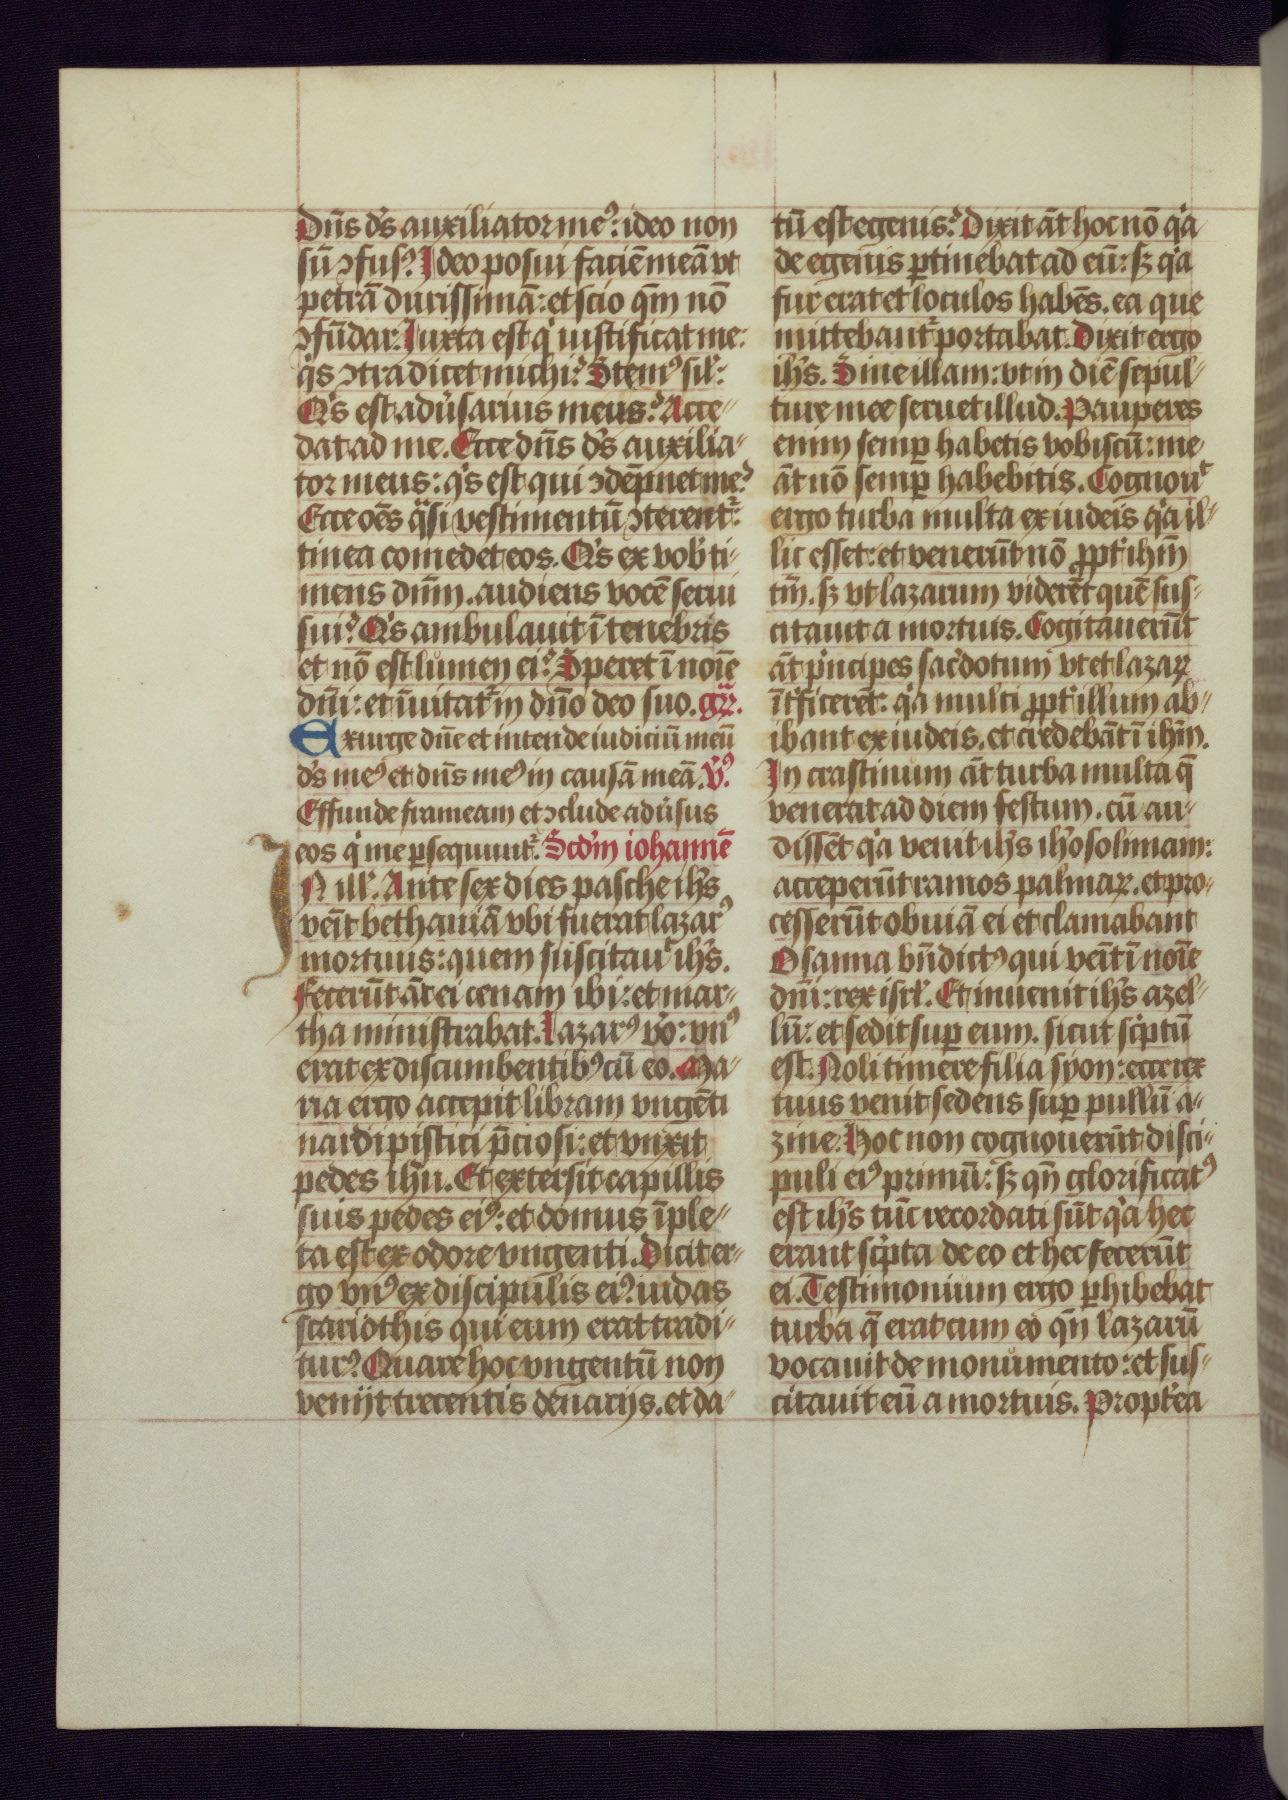 Dn̄s dꝰs auxiliator meꝰ: ideo non
sū ↄfusꝰ. Ideo posui faciē meā vt
petrā durissimā: et scio qm̄ nō
ↄfūdar. Iuxta est qͥ iustificat me:
qͥs ↄtradicet michi? Stemꝰ sil̛:
Qͥs est adūsarius meus? Acce-
dat ad me. Ecce dn̄s dꝰs auxilia-
tor meus: qͥs est qui ↄdēpnet me?
Ecce oēs qͣsi vestimentū ↄterentͬ:
tinea comedet eos. Qͥs ex vob̛ ti-
mens dnm̄. audiens vocē serui
sui? Qͥs ambulauit ī tenebris
et nō est lumen ei? Speret ī noīe
dn̄i: et īnitatͬ in dn̄o deo suo. gͬ.
Exurge dn̄e et intende iudiciū meū
dꝰs meꝰ et dn̄s meꝰ in causā meā. v̄ꝰ.
Effunde frameam et ↄclude adūsus
eos qͥ me ꝑsequuntͬ. Scd̛m iohannē
IN ill̛. Ante sex dies pasche ih̄s
venīt bethaniā vbi fuerat lazarꝰ
mortuus: quem suscitauͭ ih̄s.
Fecerūt āt ei cenam ibi: et mar-
tha ministrabat. Lazarꝰ vͦo: vnꝰ
erat ex discumbentibꝰ cū eo. Ma-
ria ergo accepit libram vngēti
nardi pistici p̄ciosi: et vnxit
pedes ih̄u. Et extersit capillis
suis pedes eiꝰ: et domus īple-
ta est ex odore vngenti. Dicit er-
go vnꝰ ex discipulis eiꝰ iudas
scariothis qui eum erat tradi-
turꝰ. Quare hoc vngentū non
venijt trecentis denarijs. et da-
tū est egenis? Dixit āt hoc nō qͥa
de egenis ꝑtinebat ad eū: sꝫ qͥa
fur erat et loculos habēs. ea que
mittebantͬ portabat. Dixit ergo
ih̄s. Sine illam: vt in diē sepul-
ture mee seruet illud. Pauperes
enim semꝑ habetis vobiscū: me
āt nō semꝑ habebitis. Cognouͭ
ergo turba multa ex iudeis qͥa il-
lic esset: et venerūt nō ꝓpt̛ ih̄m
tm̄. sꝫ vt lazarum viderēt quē sus-
citauit a mortuis. Cogitauerūt
āt pͥncipes sac̛dotum vt et lazaꝝ
īt̛ficerēt: qͥa multi ꝓpt̛ illum ab-
ibant ex iudeis. et credebāt ī ih̄m.
In crastinum āt turba multa q̄
venerat ad diem festum. cū au-
dissēt qͥa venit ih̄s ih̛osolimam:
acceperūt ramos palmaꝝ. et pro-
cesserūt obuiā ei et clamabant
Osanna bn̄dictꝰ qui venīt ī noīe
dn̄i: rex isrl̛. Et inuenit ih̄s azel-
lū: et sedit suꝑ eum. sicut scͥptū
est. Noli timere filia syon: ecce rex
tuus venit sedens suꝑ pullū a-
zine. Hoc non cognouerūt disci-
puli eiꝰ primū: sꝫ qn̄ glorificatꝰ
est ih̄s tūc recordati sūt qͥa hec
erant scͥpta de eo et hec fecerūt
ei. Testimonium ergo ꝑhibebat
turba q̄ erat cum eo qn̄ lazarū
vocauit de monumento: et sus-
citauit eū a mortuis. Propt̛ea